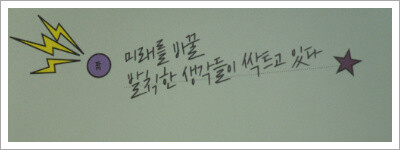 미래를 바꿀
발칙한 생각들이 싹트고 있다